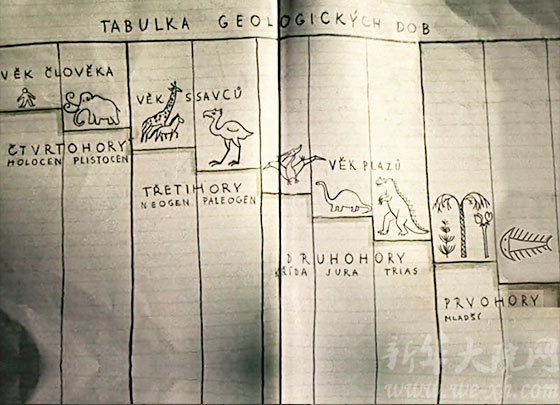 TABULKA GEOLOGICKÝCH DOB
VĚK ČLOVĚKA
ČTVRTOHORY
HOLOCEN PLISTOCEN
VĚK SSAVCŮ
TŘETIHORY
NEOGEN PALEOGEN
VĚK PLAZŮ
DRUHOHORY
KŘÍDA JURA TRIAS
PRVOHORY
MLADŠÍ
新华大院网
www.we-xh.com